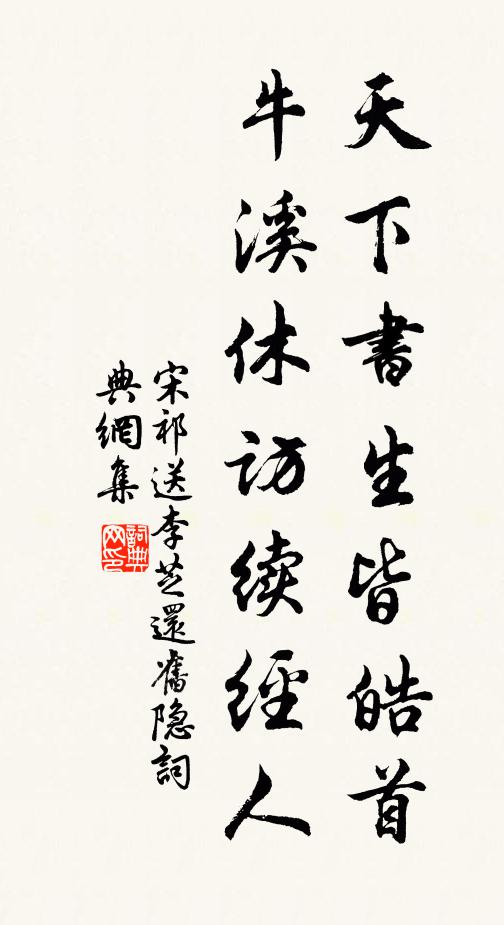 天下書生皆皓首
牛溪休訪續經人
宋祁送李芝還舊隐詞
典網集
詞典
网印